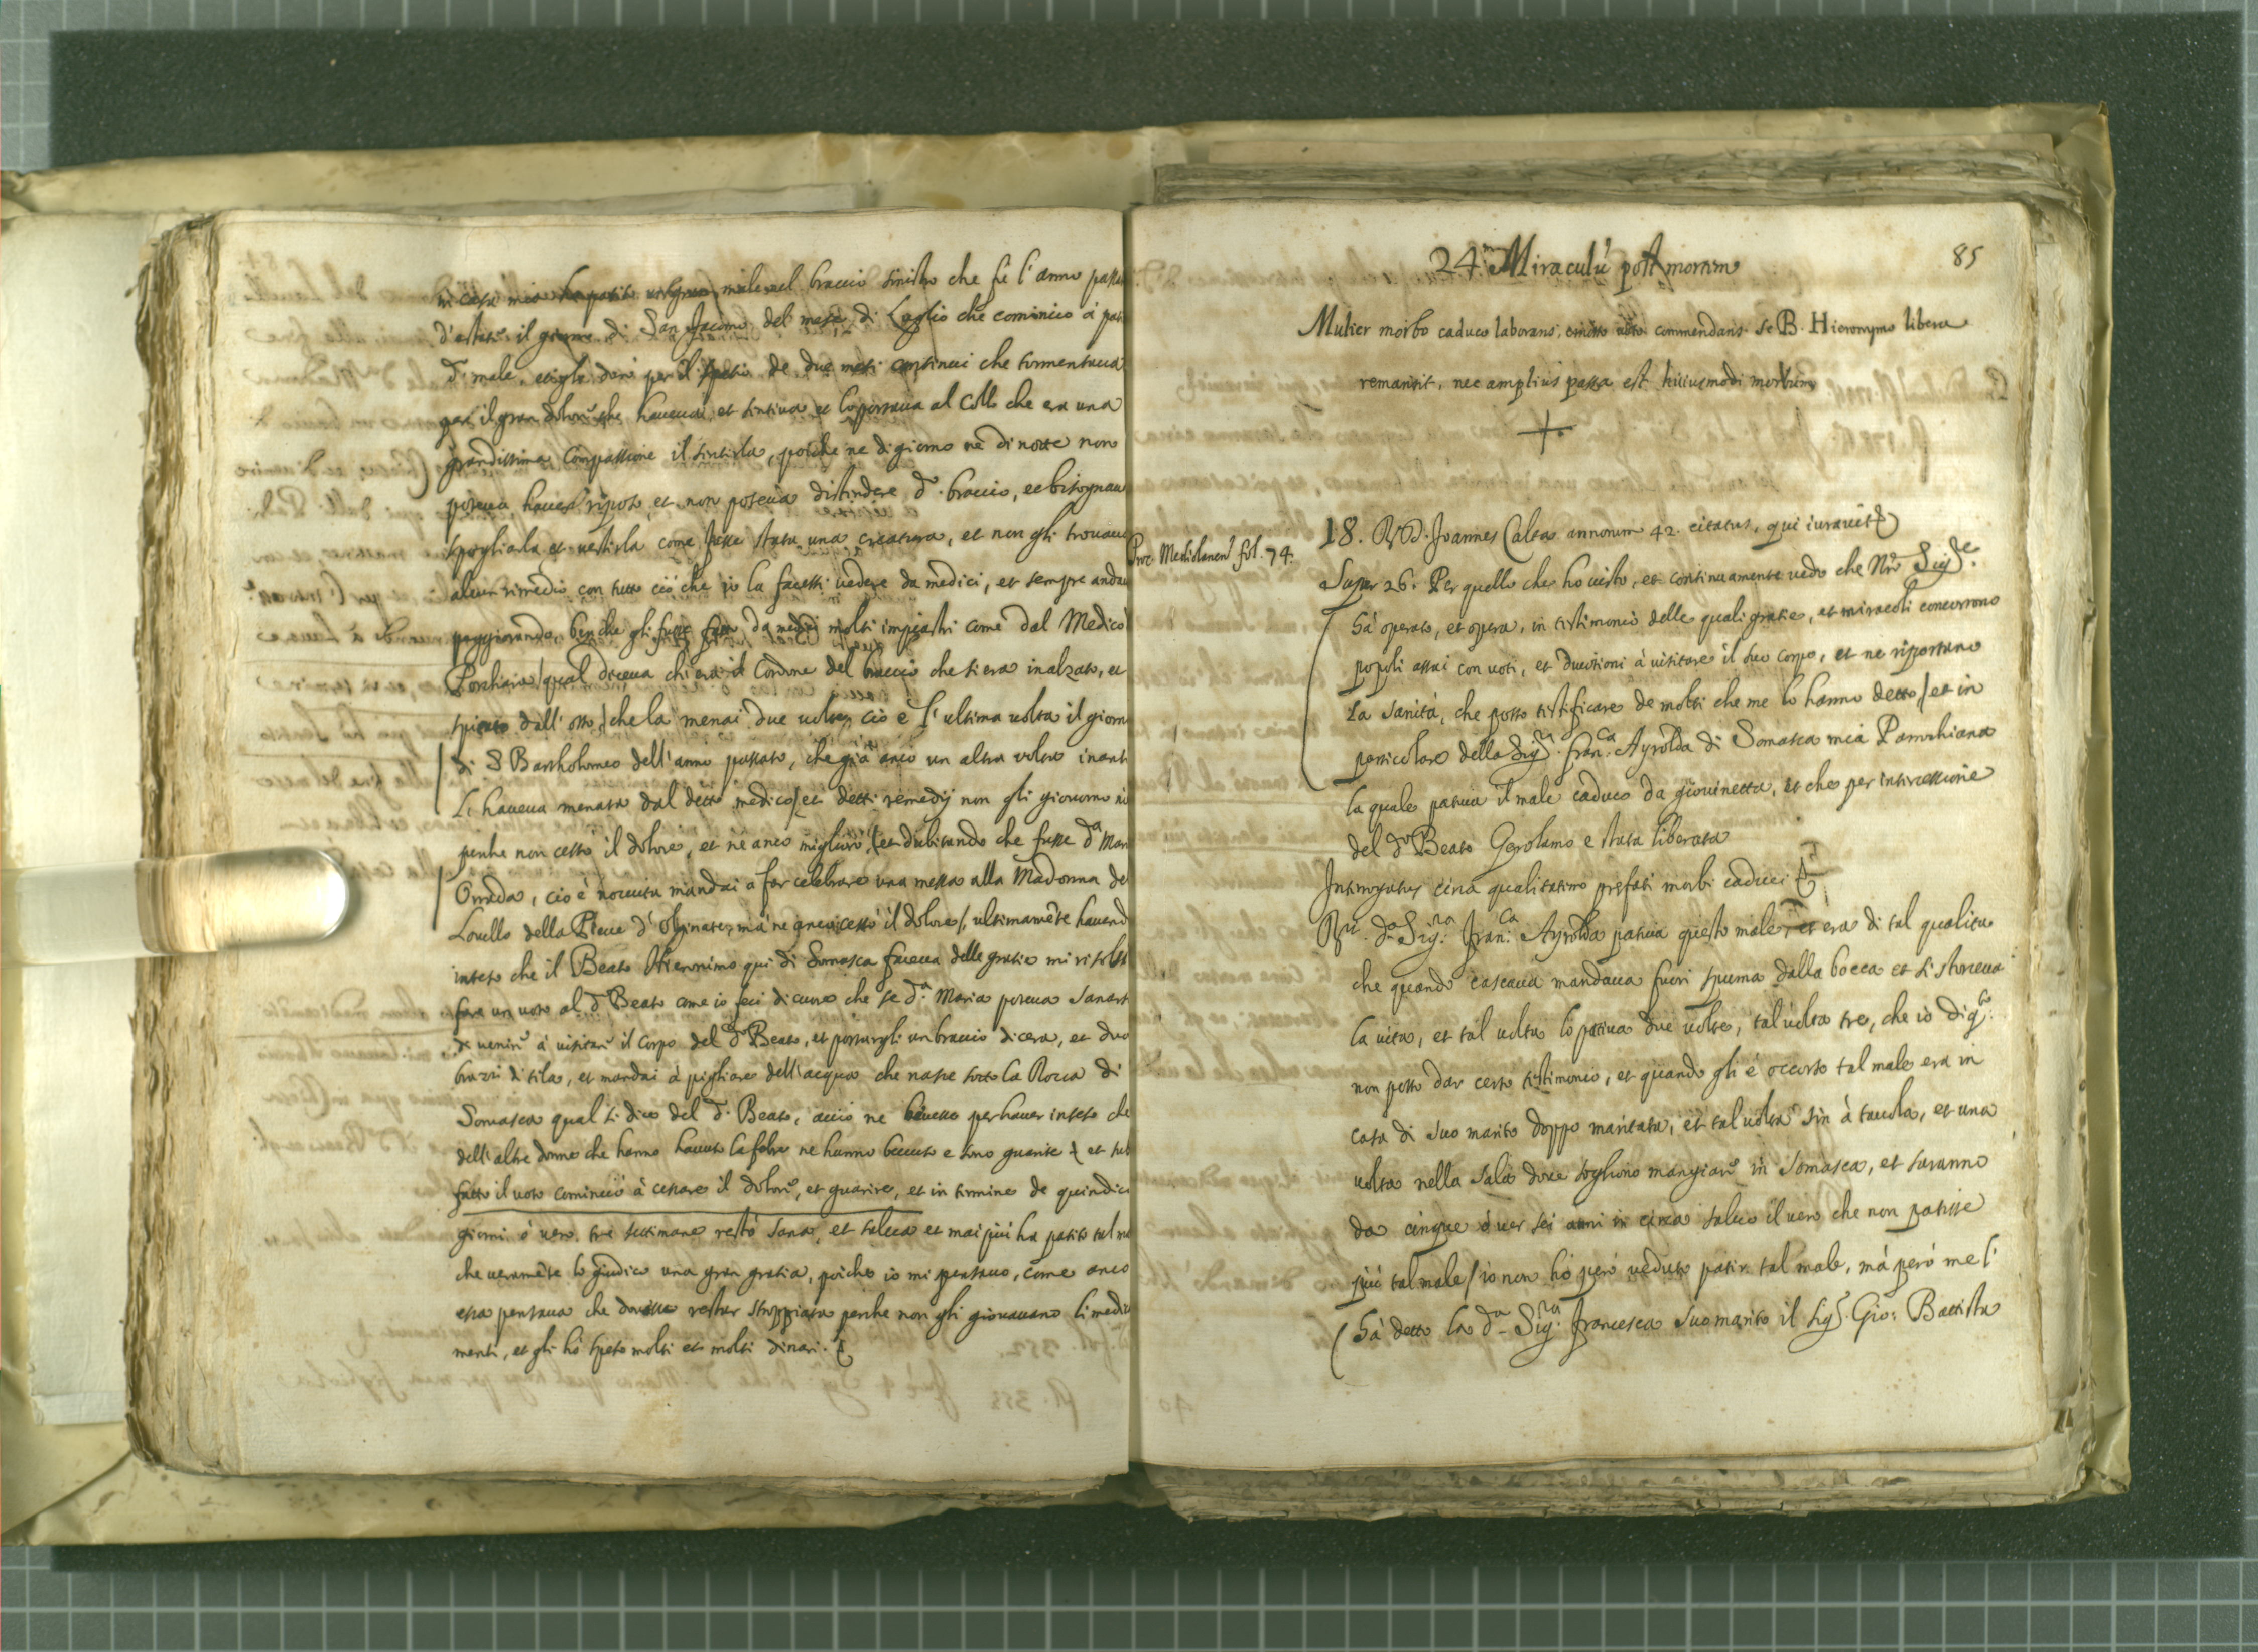 in casa mia ha patito un gran male nel braccio sinistro che fù l'anno passa
d'estate il giorno di San Jacomo del mese di Luglio che cominciò à pati
d.º male, et gli durò per il spatio de due mesi continui che tormentava
per il gran dolore che haveva, et sentiva et lo portava al Collo che era una
grandissima Compassione il sentirla, poiche ne di giorno ne di notte non
poteva haver riposo, et non poteva distindere d.º braccio, et bisognava
spogliarla et vestirla come fusse stata una creatura, et non gli trovava
alcun rimedio con tutto ciò che io la facessi vedere da medici, et sempre andav
peggiorando, benche gli fusse fatto da medici molti impiastri come dal Medico
qual diceva chi era il Cordone del braccio che si era inalzato, et
dall'osso, che la menai due volte, cio è l'ultima volta il giorn
di S Bartholomeo dell'anno passato, che già anco un altra volta inant
L' haveva menata dal detto medico et detti remedij non gli giovorno ni
perche non cessò il dolore, et ne anco migliorò, et dubitando che fusse d.ª Mar
cio è nociuta mandai a far celebrare una messa alla Madonna de
Lovello della Pieve d'Olginate, mà ne anco cessò il dolore, ultimamēte havend
inteso che il Beato Hieronimo qui di Somasca faceva delle gratie mi risolsi
fare un voto al d.º Beato come io feci di cuore che se d.ª Maria poteva sanars
de venire à visitare il Corpo del d.º Beato, et portargli un braccio di cera, et due
brazzi di tila, et mandai à pigliare dell'acqua che nasce sotto la Rocca di
Somasca qual si dice del d.º Beato, acciò ne bevesse per haver inteso che
dell'altre donne che hanno havuto la febre ne hanno bevuto e sono guarite et sub
fatto il voto cominciò à cessare il dolore, et guarire, et in termine de quindici
giorni ò vero tre settimane restò sana, et salva et mai più ha patito tal m
che veramēte lo giudico una gran gratia, poiche io mi pensavo, come anco
essa pensava che dovesse restar stroppiata perche non gli giovavano li medic
menti, et gli hò speso molti et molti dinari.
85
24.ᵐ Miraculū post mortem
Mulier morbo caduco laborans, emisso voto commendans se B. Hieronymo libera
remansit, nec amplius passa est huiusmodi morbum
Proc. Mediolanen. fol. 74.
18. R. D. Joannes Calta annorum 42. citatus, qui iuravit
Super 26. Per quello che ho visto, et continuamente vedo che Nrō Sig.ʳᵉ
hà operato, et opera, in testimonio delle quali gratie, et miracoli concorrono
popoli assai con voti, et devotioni à visitare il suo corpo, et ne riportano
La sanità, che posso testificare de molti che me lo hanno detto et in
particolare della Sig.ʳᵃ Fran.ᶜᵃ Ayrolda di Somasca mia Parochiana
la quale pativa il male caduco da giovinetta, et che per intercessione
del d.º Beato Gerolamo e stata liberata
Interrogatus circa qualitatem prefati morbi caduci
R.ᵗ d.ª Sig.ʳᵃ Fran.ᶜᵃ Ayrolda pativa questo male, et era di tal qualità
che quando cascava mandava fuori spuma dalla bocca et si storceva
la vita, et tal volta lo pativa due volte, tal volta tre, che iò di q.ᵗᵒ
non posso dar certo testimonio, et quando gli è occorso tal male era in
casa di suo marito doppo maritata, et tal volta sin à tavola, et una
volta nella sala dove sogliono mangiare in Somasca, et saranno
da cinque ò ver sei anni in circa salvo il vero che non patisse
più tal male io non hò però veduto patir tal male, mà però me l'
hà detto la d.ª Sig.ʳᵃ Francesca suo marito il Sig.ʳ Gio: Battista